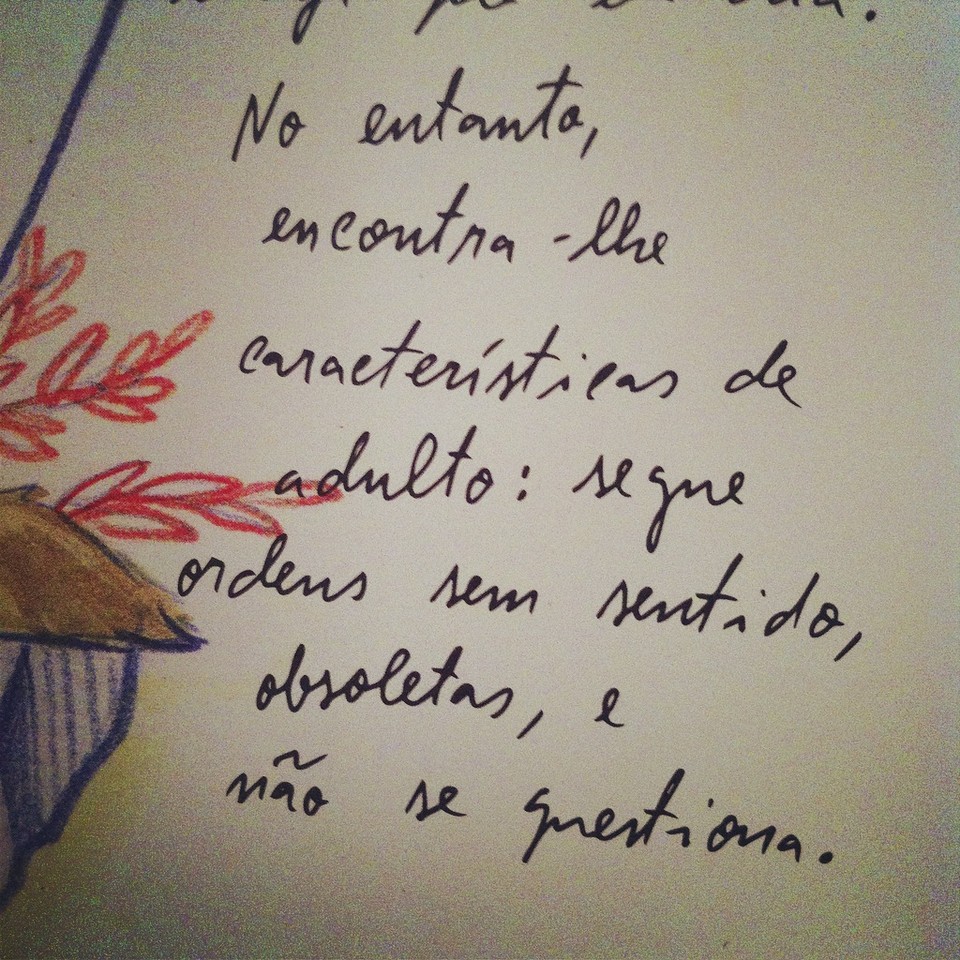 No entanto,
encontra-lhe
características de
adulto: segue
ordens sem sentido,
obsoletas, e
não se questiona.